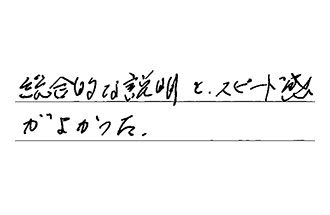 総合的な説明と、スピード感
がよかった。